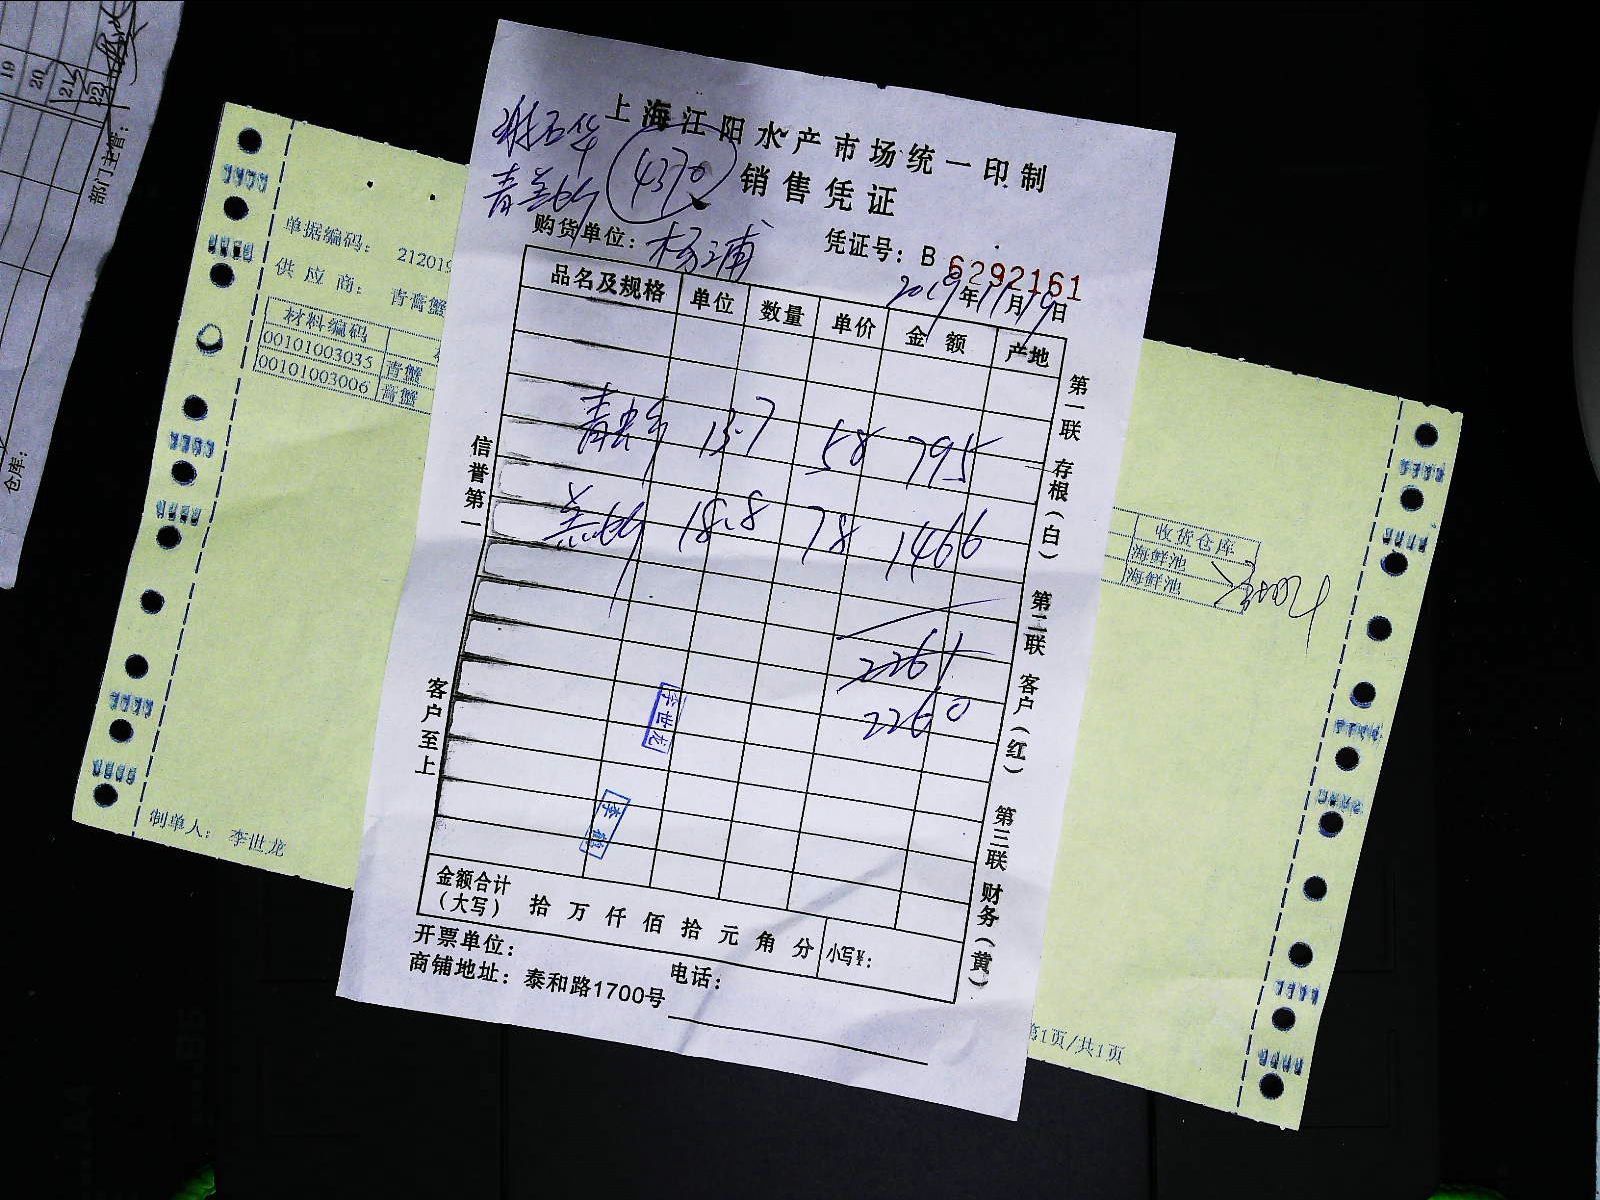 19
20
21
22
部门主管：
仓库：
上海江阳水产市场统一印制
4370
销售凭证
购货单位：杨浦
凭证号：B 6292161
2019年11月19日
品名及规格 单位 数量 单价 金额 产地
13.7 58 795
18.8 78 1466
2261
2260
李世龙
金额合计（大写） 拾 万 仟 佰 拾 元 角 分 小写¥：
开票单位：
电话：
商铺地址：泰和路1700号
信誉第一
客户至上
第一联 存根（白） 第二联 客户（红） 第三联 财务（黄）
单据编码： 212019
供应商： 青膏蟹
材料编码
00101003035 青蟹
00101003006 膏蟹
收货仓库
海鲜池
海鲜池
制单人： 李世龙
第1页/共1页